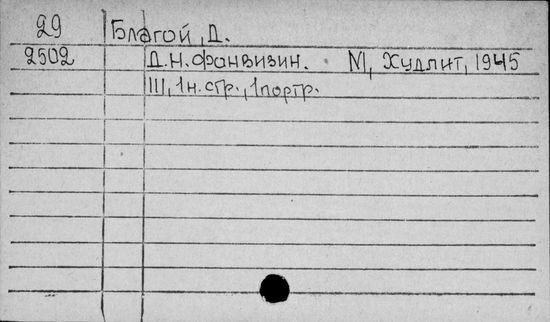 29 Благой, Д.
2502 Д.Н. Фонвизин. М, Худлит, 1945
111, 1н. стр., 1 портр.